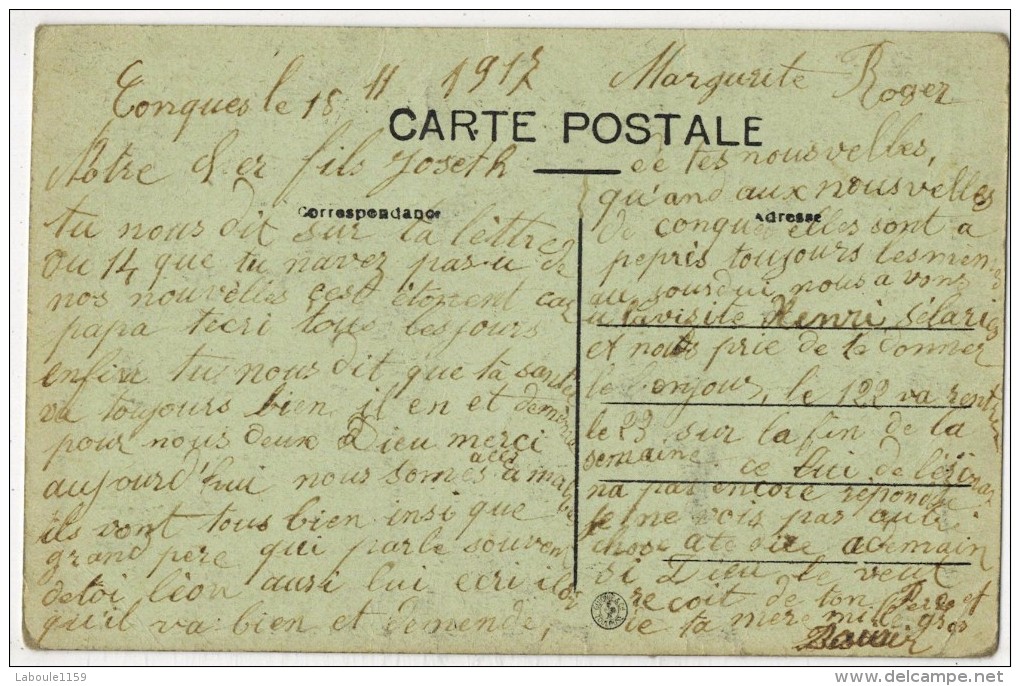 Conques le 18 11 1917
Notre cher fils Joseth
Correspondance
tu nous dit sur ta lettre
ou 14 que tu navez pas u de
nos nouvelles cest étonent car
papa tecri tous les jours
enfin tu nous dit que ta santé
va toujours bien il en et de meme
pour nous deux Dieu merci
aujourd'hui nous somes
ils vont tous bien insi que
grand pere qui parle souvent
de toi léon aussi lui ecri
qu'il va bien et demende,
CARTE POSTALE
Margurite Roger
de tes nousvelles,
qu'and aux nousvelles
de conques elles sont a
Adresse
pepris toujours les meme
au jourdui nous a vons
u la visite Henri Sélariés
et nous prie de te donner
le bonjour, le 122 va rentrer
le 23 sur la fin de la
semaine ce lui de
na pas encore répondu
je ne vois pas autre
chose a te dire a demain
si Dieu le veut
re çoit de ton Pere et
de ta mere mille gros
Baiser
Laboule1159
delcampe.net